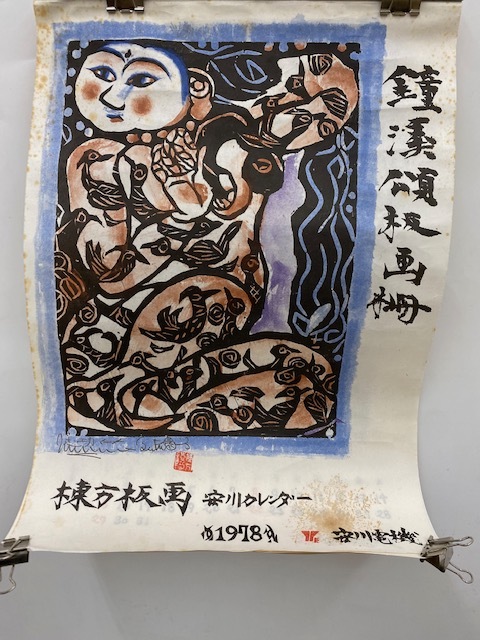 鐘溪頌板画柵
棟方板画 安川カレンダー
1978
安川電機